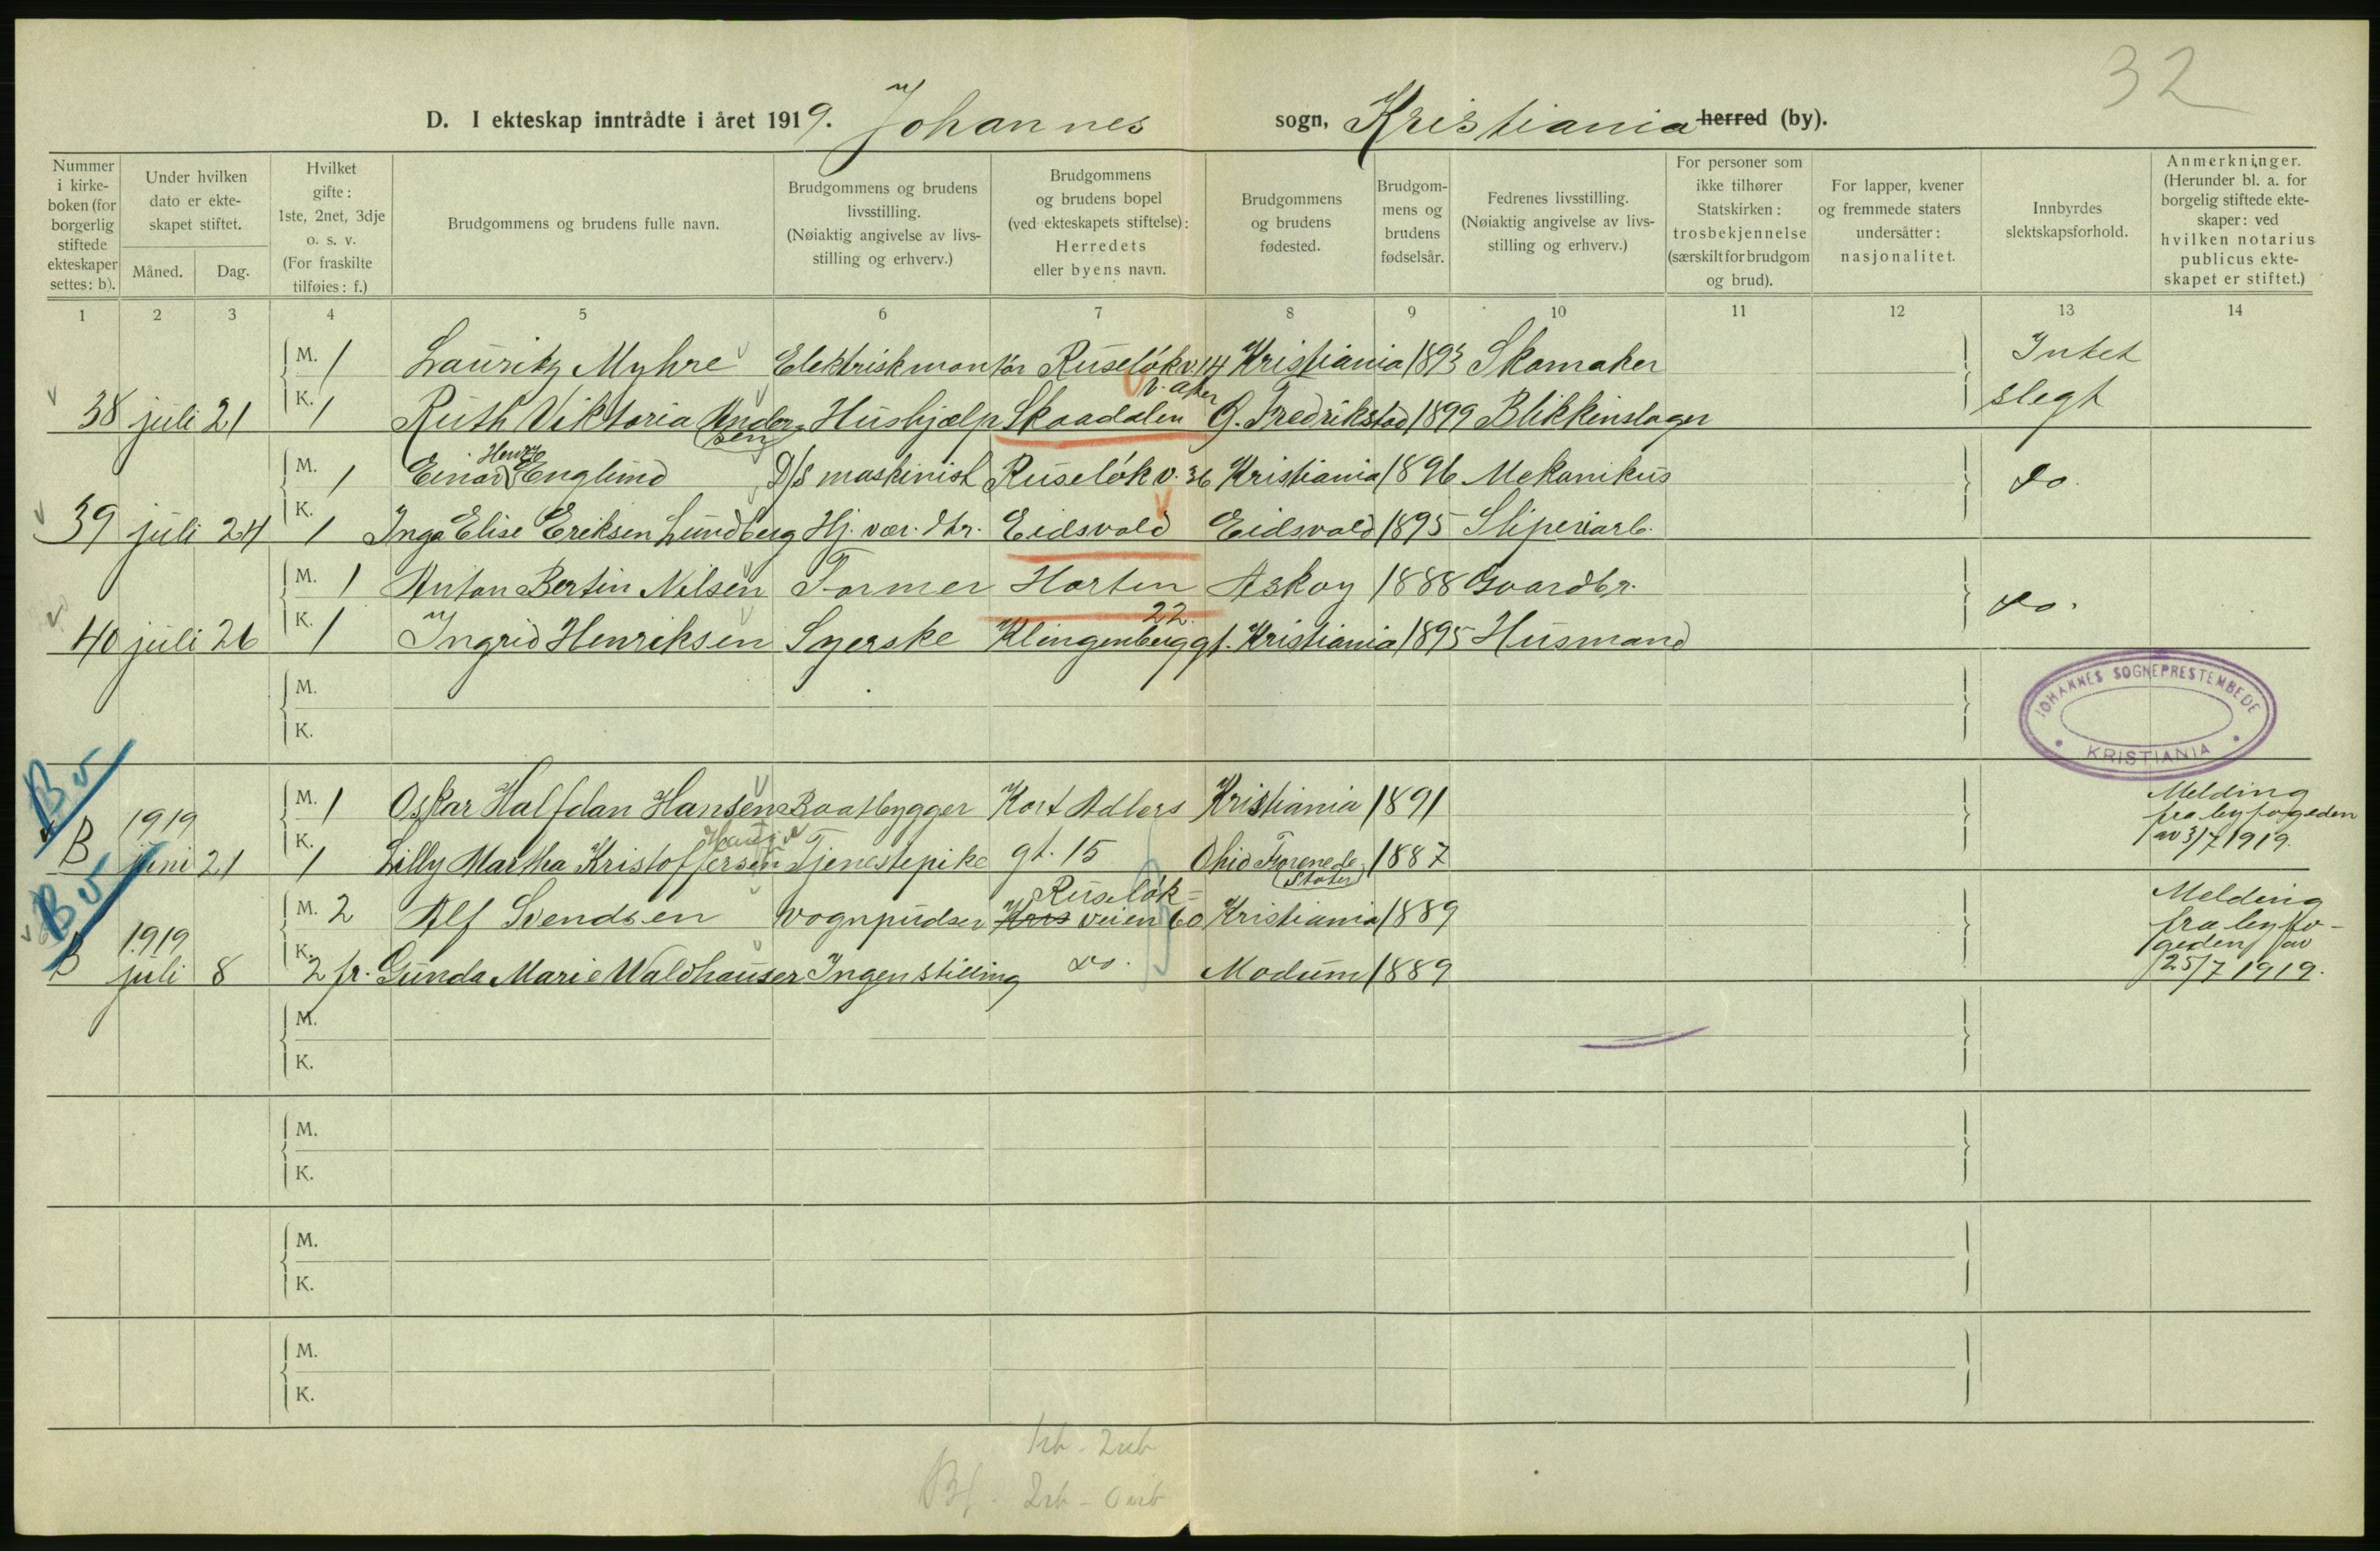 32
D. I ekteskap inntrådte i året 1919. Johannes sogn, Kristiania herred (by).
Nummer i kirkeboken (for borgerlig stiftede ekteskaper settes: b).
Under hvilken dato er ekteskapet stiftet.
Måned. Dag.
Hvilket gifte: 1ste, 2net, 3dje o. s. v. (For fraskilte tilføies: f.)
Brudgommens og brudens fulle navn.
Brudgommens og brudens livsstilling. (Nøiaktig angivelse av livsstilling og erhverv.)
Brudgommens og brudens bopel (ved ekteskapets stiftelse): Herredets eller byens navn.
Brudgommens og brudens fødested.
Brudgommens og brudens fødselsår.
Fedrenes livsstilling. (Nøiaktig angivelse av livsstilling og erhverv.)
For personer som ikke tilhører Statskirken: trosbekjennelse (særskilt for brudgom og brud).
For lapper, kvener og fremmede staters undersåtter: nasjonalitet.
Innbyrdes slektskapsforhold.
Anmerkninger. (Herunder bl. a. for borgelig stiftede ekteskaper: ved hvilken notarius publicus ekteskapet er stiftet.)
1 2 3 4 5 6 7 8 9 10 11 12 13 14
M. 1 Lauritz Myhre Elektriskmontør Ruseløkv. 14 Kristiania 1893 Skomaker Intet
v. aker
38 juli 21 K. 1 Ruth Viktoria Andersen Hushjælp Skaadalen G. Fredrikstad 1899 Blikkenslager slegt
M. 1 Einar Englund D/S maskinist Ruseløk v. 36 Kristiania 1896 Mekanikus do.
39 juli 24 K. 1 Inga Elise Eriksen Lundberg Hj. vær. dtr. Eidsvold Eidsvold 1895 Sliperiarb.
M. 1 Anton Bertin Nilsen Former Horten Askøy 1888 Gaardbr. do.
22.
40 juli 26 K. 1 Ingrid Henriksen Syerske Klingenberggt. Kristiania 1895 Husmand
M.
K.
JOHANNES SOGNEPRESTEMBEDE KRISTIANIA
B
M. 1 Oskar Halfdan Hansen Baatbygger Kort Adlers Kristiania 1891 Melding fra byfogeden av 3/7 1919.
B 1919 juni 21 K. 1 Lilly Martha Kristoffersen Tjenestepike gt. 15 Ohio Forenede Stater 1887
B
M. 2 Alf Svendsen Vognpudser Kris Ruseløkveien 60 Kristiania 1889 Melding fra byfogeden av 25/7 1919.
B 1919 juli 8 K. 2 fr. Gunda Marie Waldhauser Ingen stilling do. Modum 1889
M.
K.
M.
K.
M.
K.
M.
K.